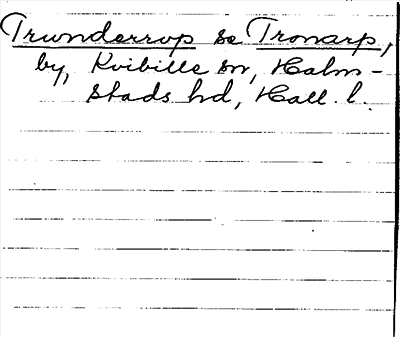 Trunderrup se Tronarp,
by, Kvibille sn, Halm-
stads hd, Hall. l.